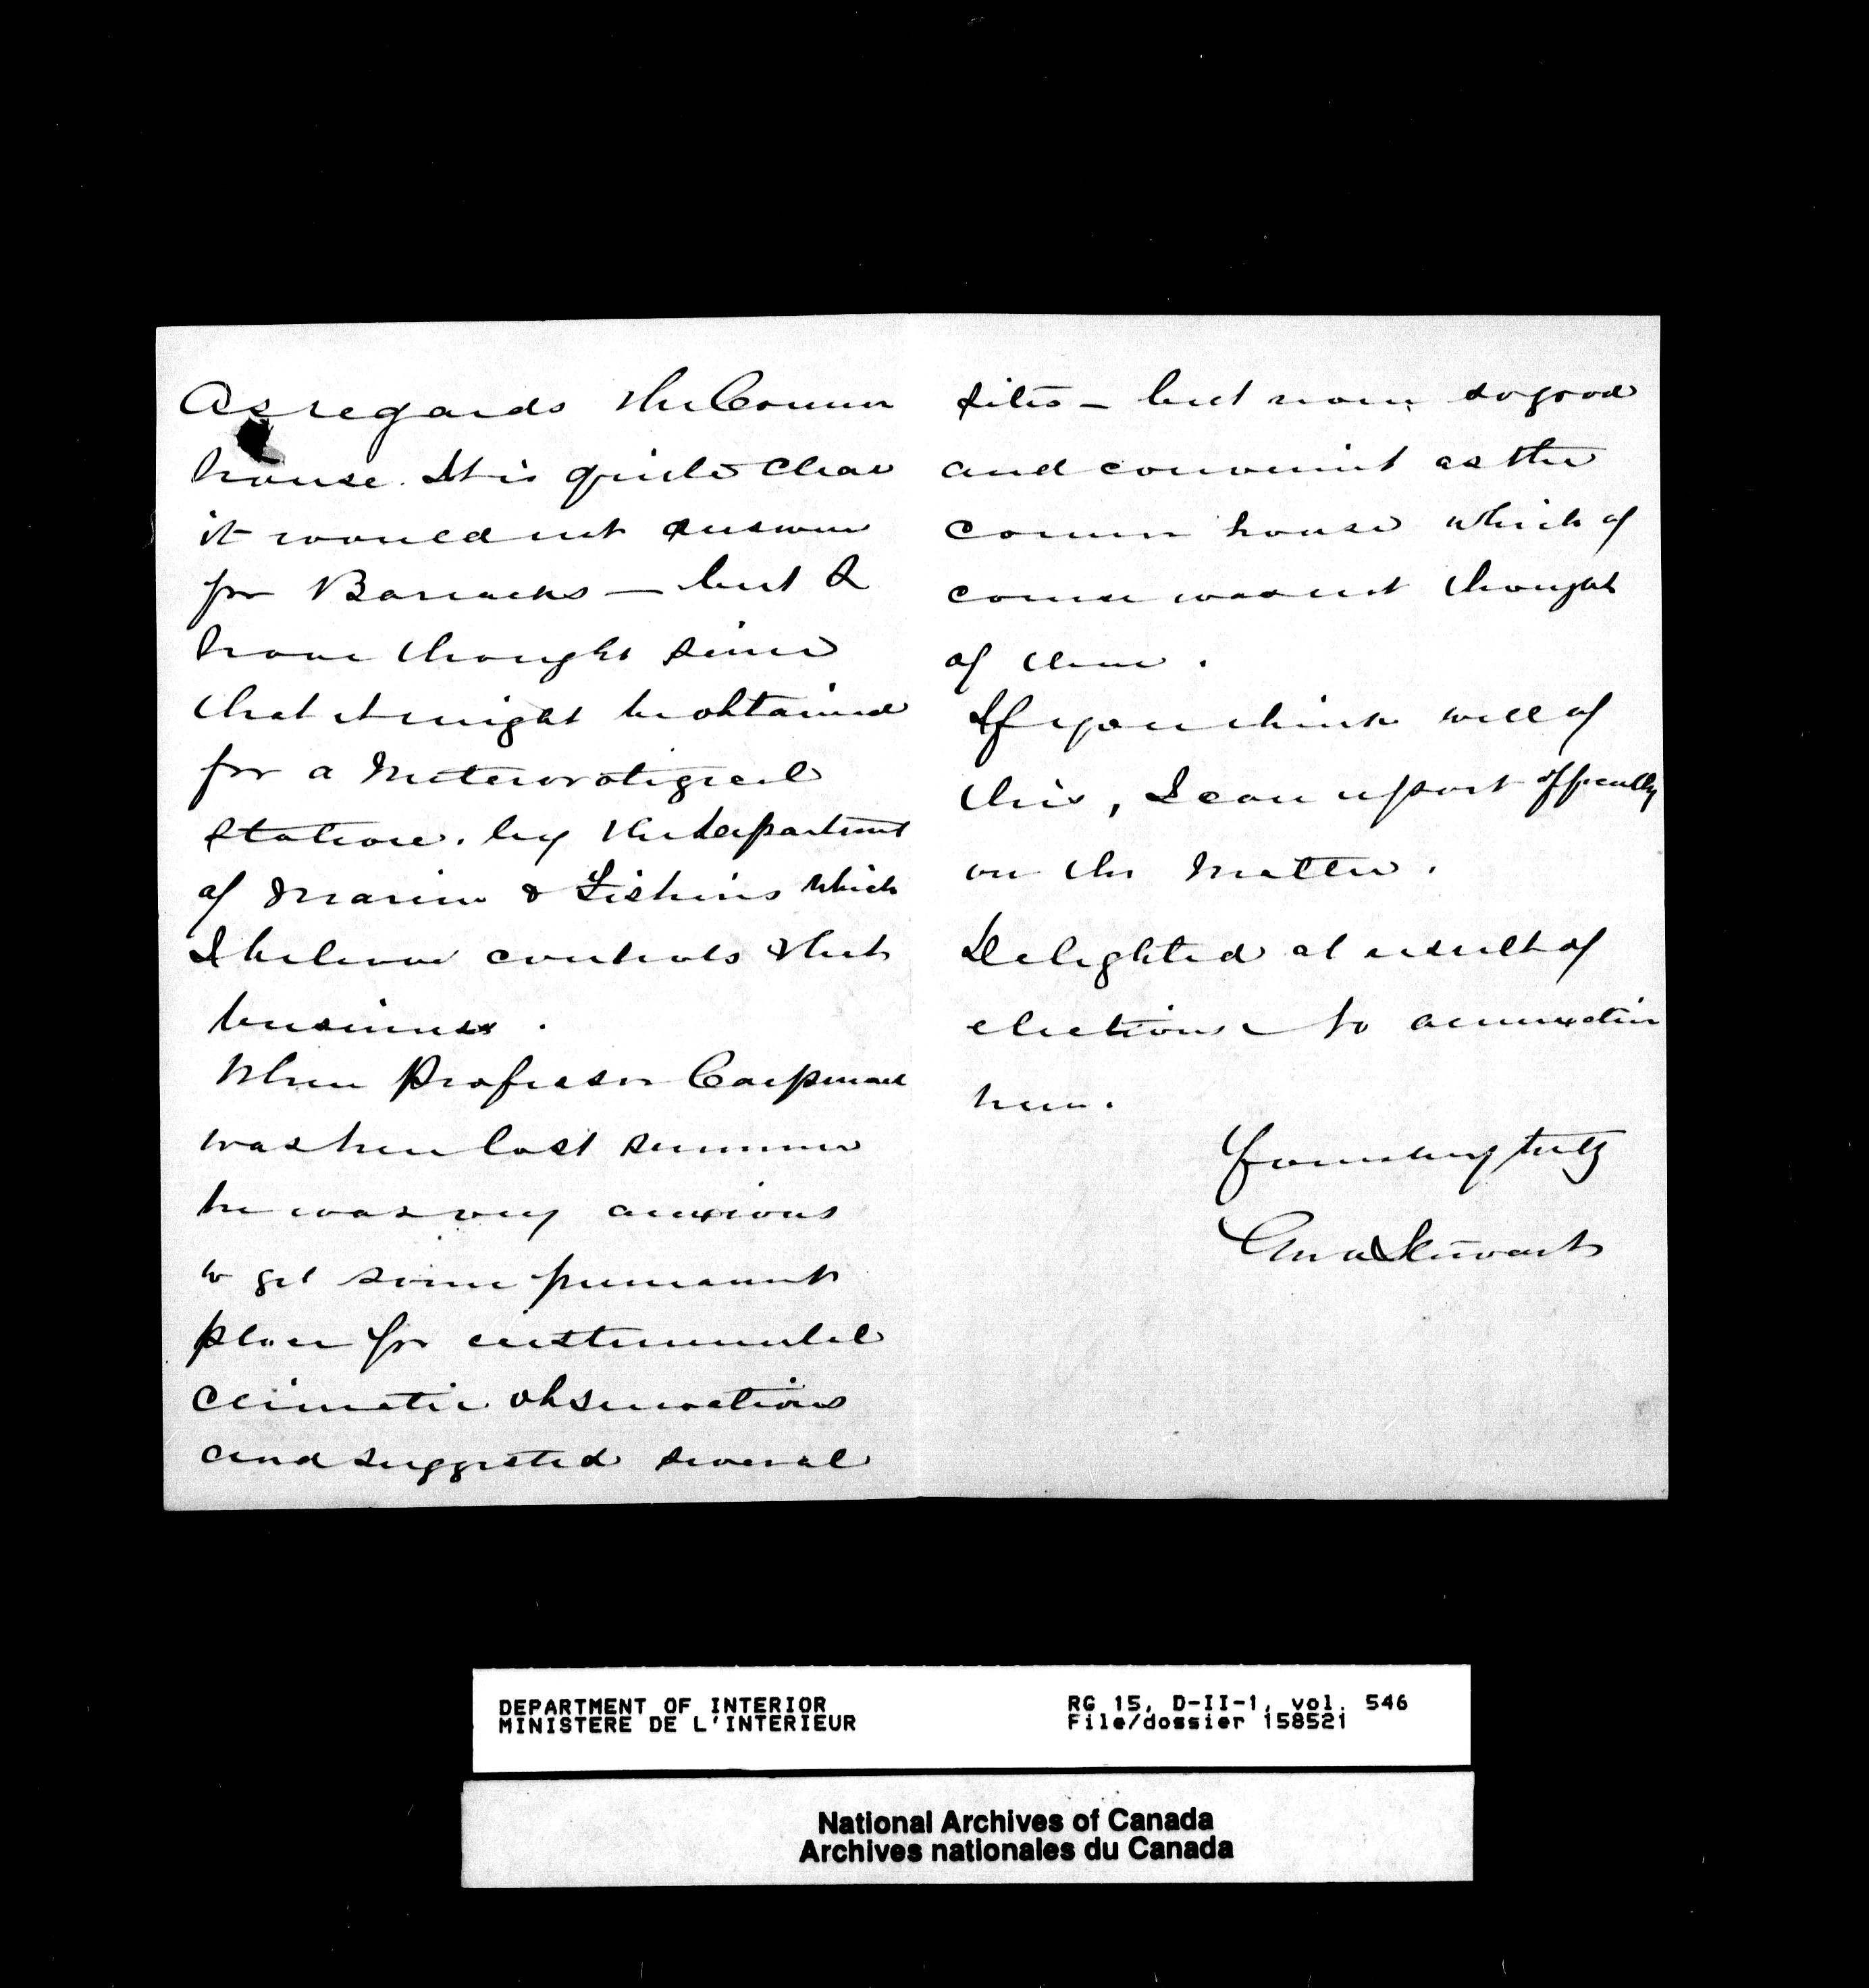 As regards the Connor
house. It is quite clear
it would not answer
for Barracks — but I
have thought since
that it might be obtained
for a Meteorological
Station. by the Department
of Marine & Fisheries which
I believe controls that
business.
When Professor Carpmael
was here last summer
he was very anxious
to get some permanent
place for instrumental
climatic observations
and suggested several
sites — but none so good
and convenient as the
Connor house which of
course was not thought
of then.
If you think well of
this, I can report officially
on the matter.
Delighted at result of
elections to
here.
Yours very truly
Geo A Stewart
DEPARTMENT OF INTERIOR
MINISTERE DE L'INTERIEUR
RG 15, D-II-1, vol. 546
File/dossier 158521
National Archives of Canada
Archives nationales du Canada